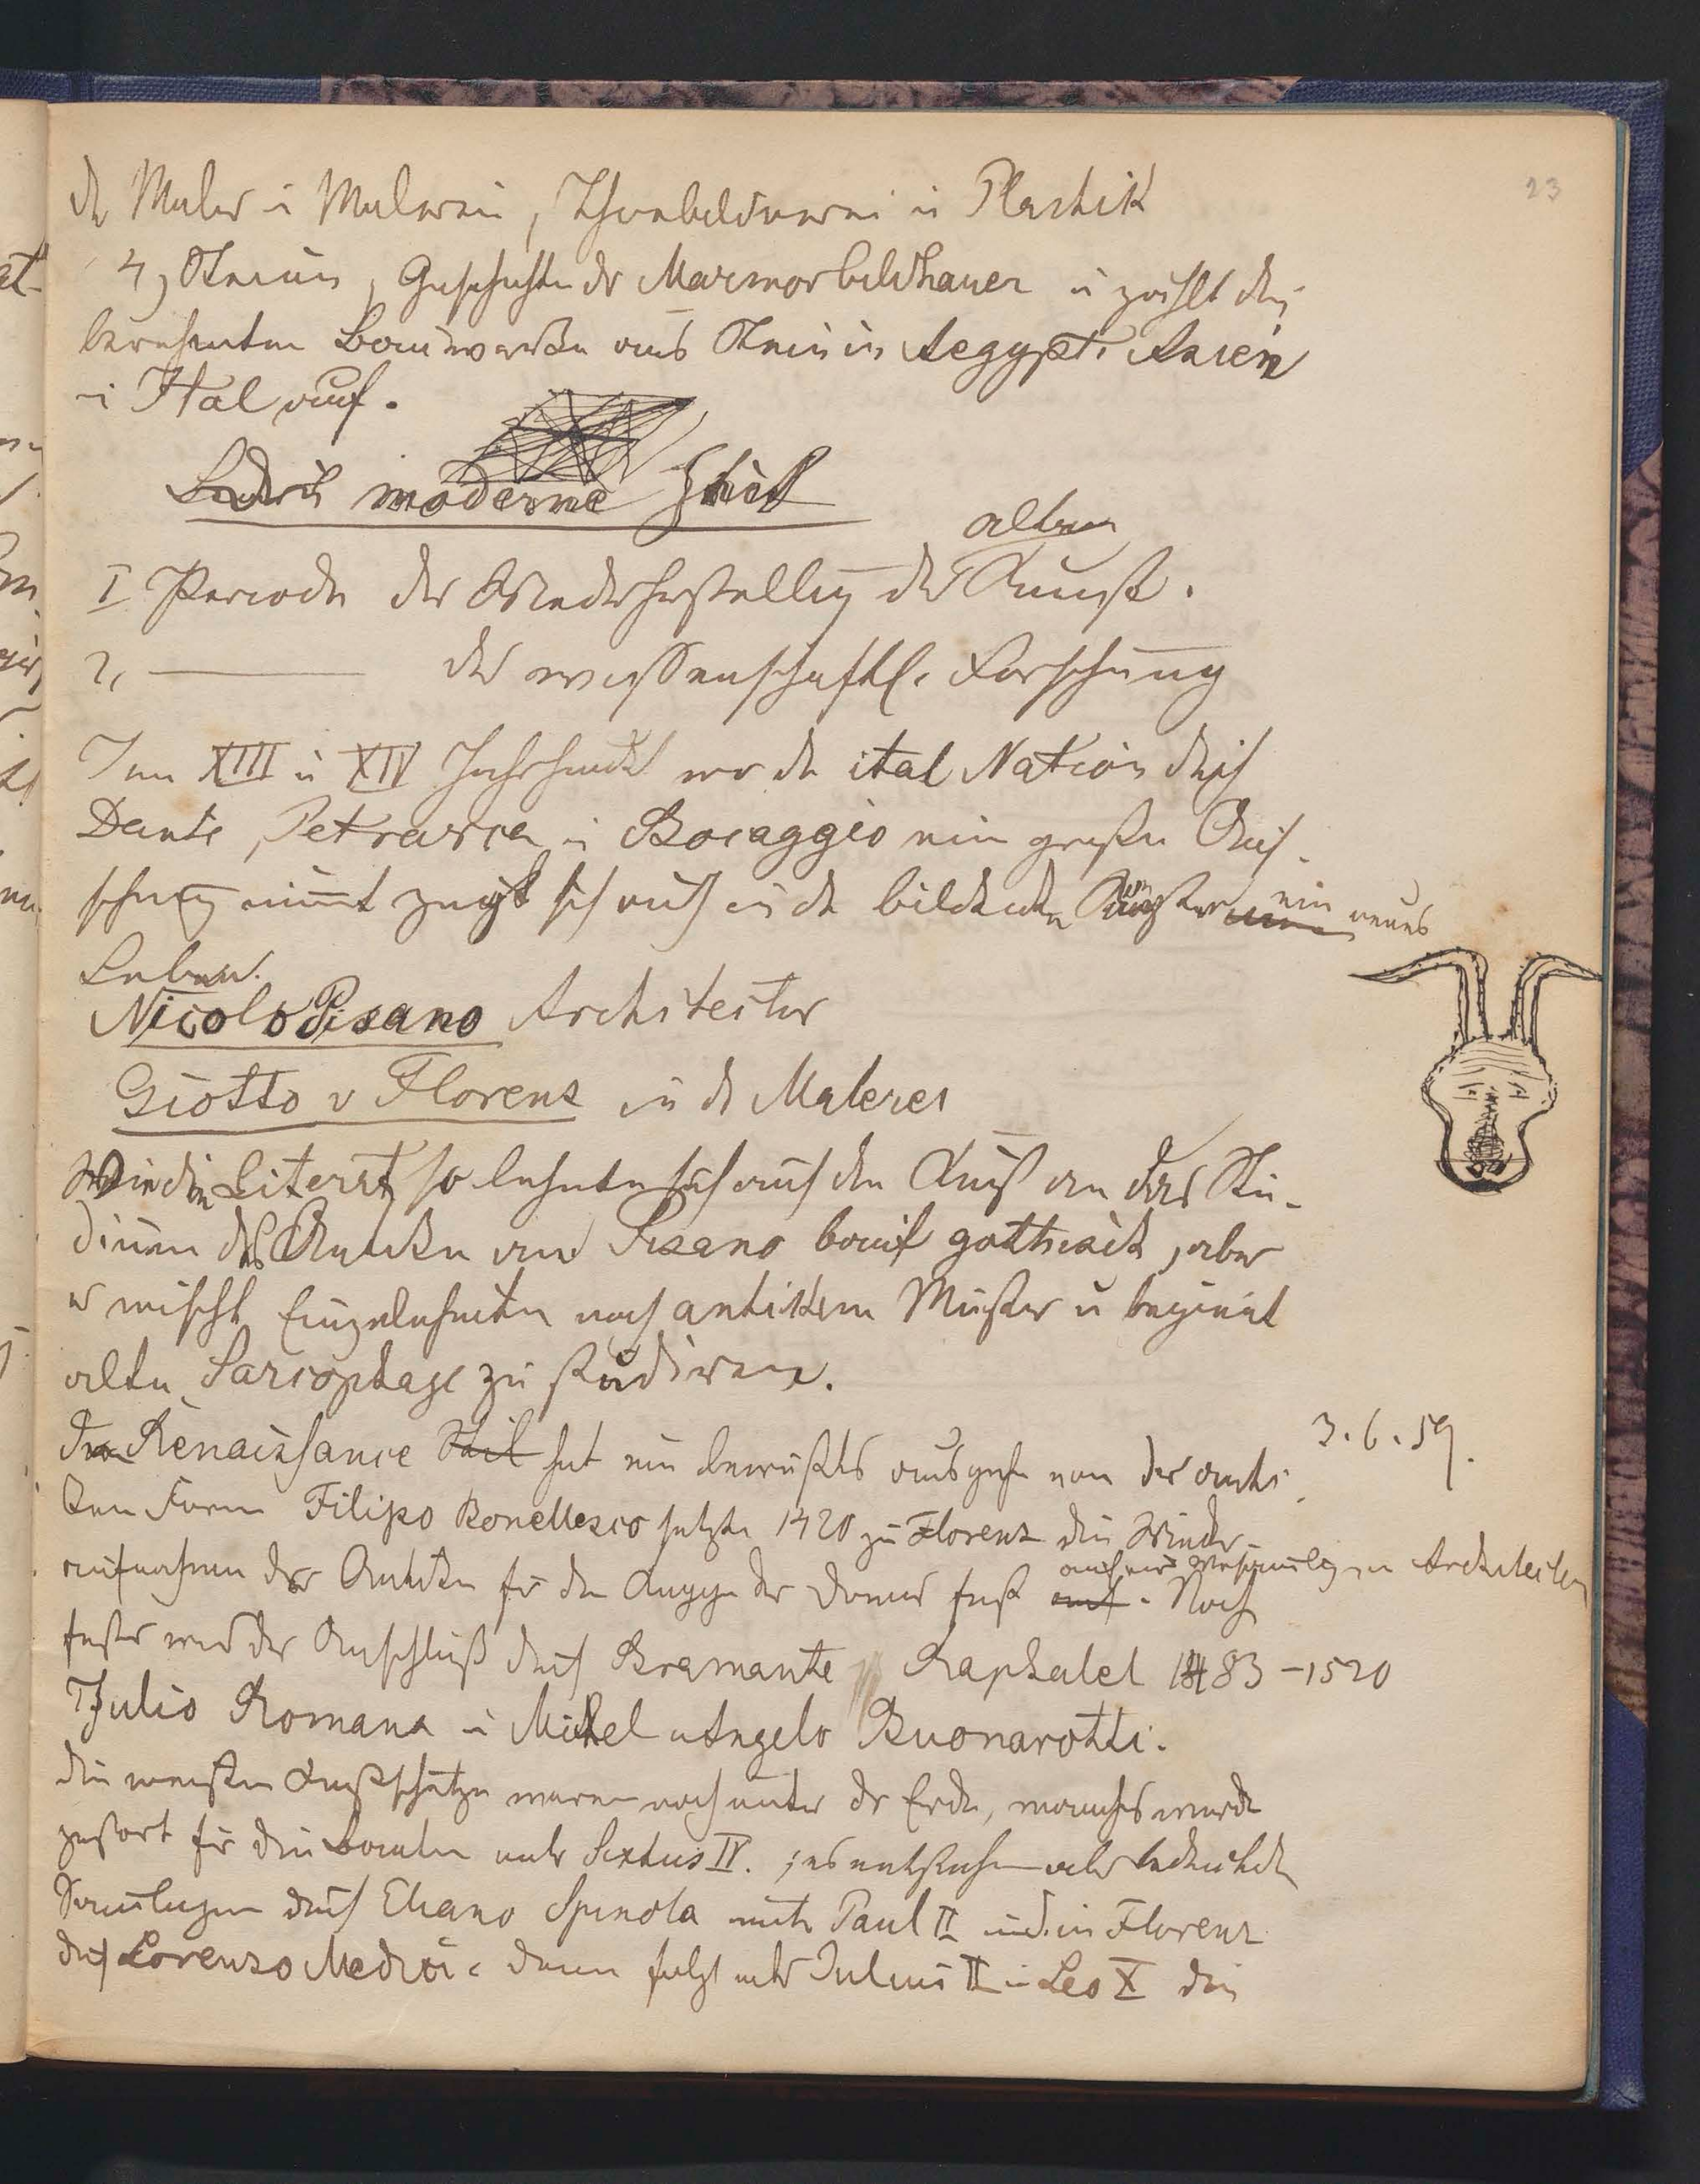 23
der Maler u Malerei, Thonbildnerei u Plastik
4, Steine, Geschichte der Marmorbildhauer u zählt die
beruhmten Bauwerke aus Stein in Aegypt. Asien
u Ital auf.
moderne Zeit
I Periode der Wiederherstellung der alten Kunst.
2, — der wissenschaftl. Forschung
Im XIII u XIV Jahrhundt wo die ital Nation durch
Dante, Petrarca u Bocaggio ein großen Auf-
schwung nimmt zeigt sich auch in den bildenden Künsten ein neues
Leben.
Nicolo Pisano Architectur
Giotto v Florenz in der Malerei
Wie die Literat so lehnte sich auch die Kunst an das Stu-
dium der Antiken an Pisano baut gothisch, aber
er mischt Einzelnheiten nach antikem Muster u beginnt
alte Sarcophage zu studiren.
3.6.59.
Die Renaissance Stil hat ein bewußtes ausgehn von der anti-
ken Form Filipo Bonellesco setzte 1420 zu Florenz die Wieder-
aufnahme der Antiken für die Kuppel des Domes fest auf einer Versammlg von Architekten
auf. Noch
fester wird der Anschluß durch Bramante Raphael 1483–1520
Julio Romana u Michel Angelo Buonarotti.
die meisten Kunstschätze waren noch unter der Erde, manches wurde
zerstort für die Bauten unter Sixtus IV.; es entstehen aber bedeutende
Samlugen durch Eliano Spinola unter Paul II und in Florenz
durch Lorenzo Medici. dann folgt unter Julius II u Leo X die